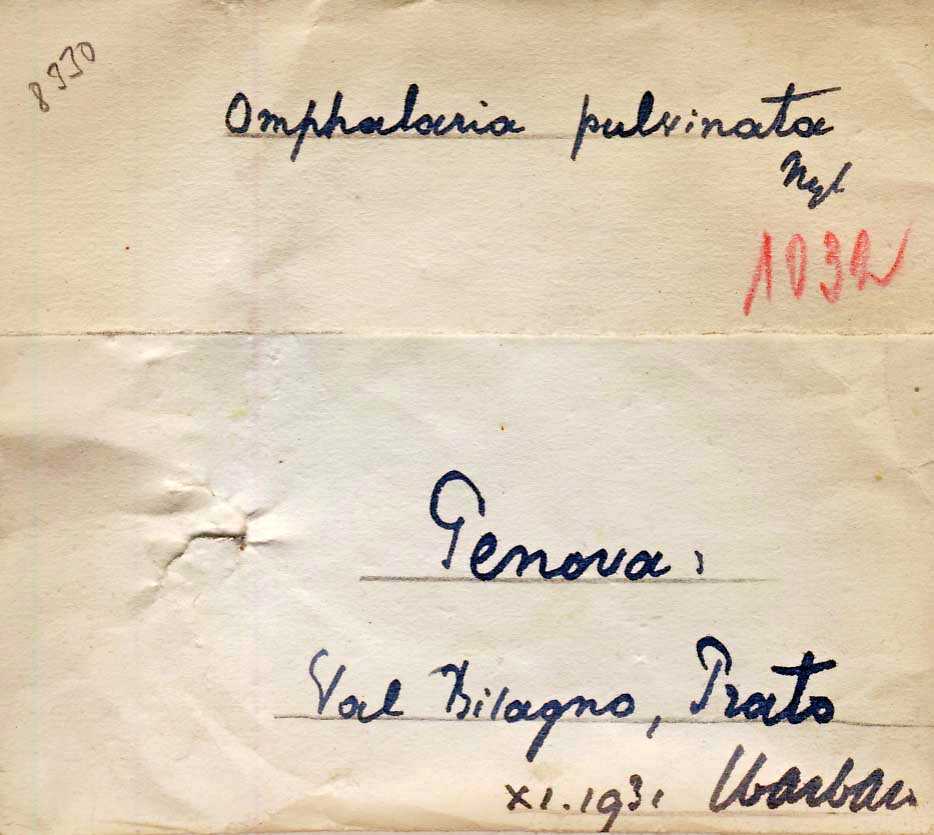 8930
Omphalaria pulvinata
Nyl
1032
Genova:
Val Bisagno, Prato
XI.1931 Sbarbaro